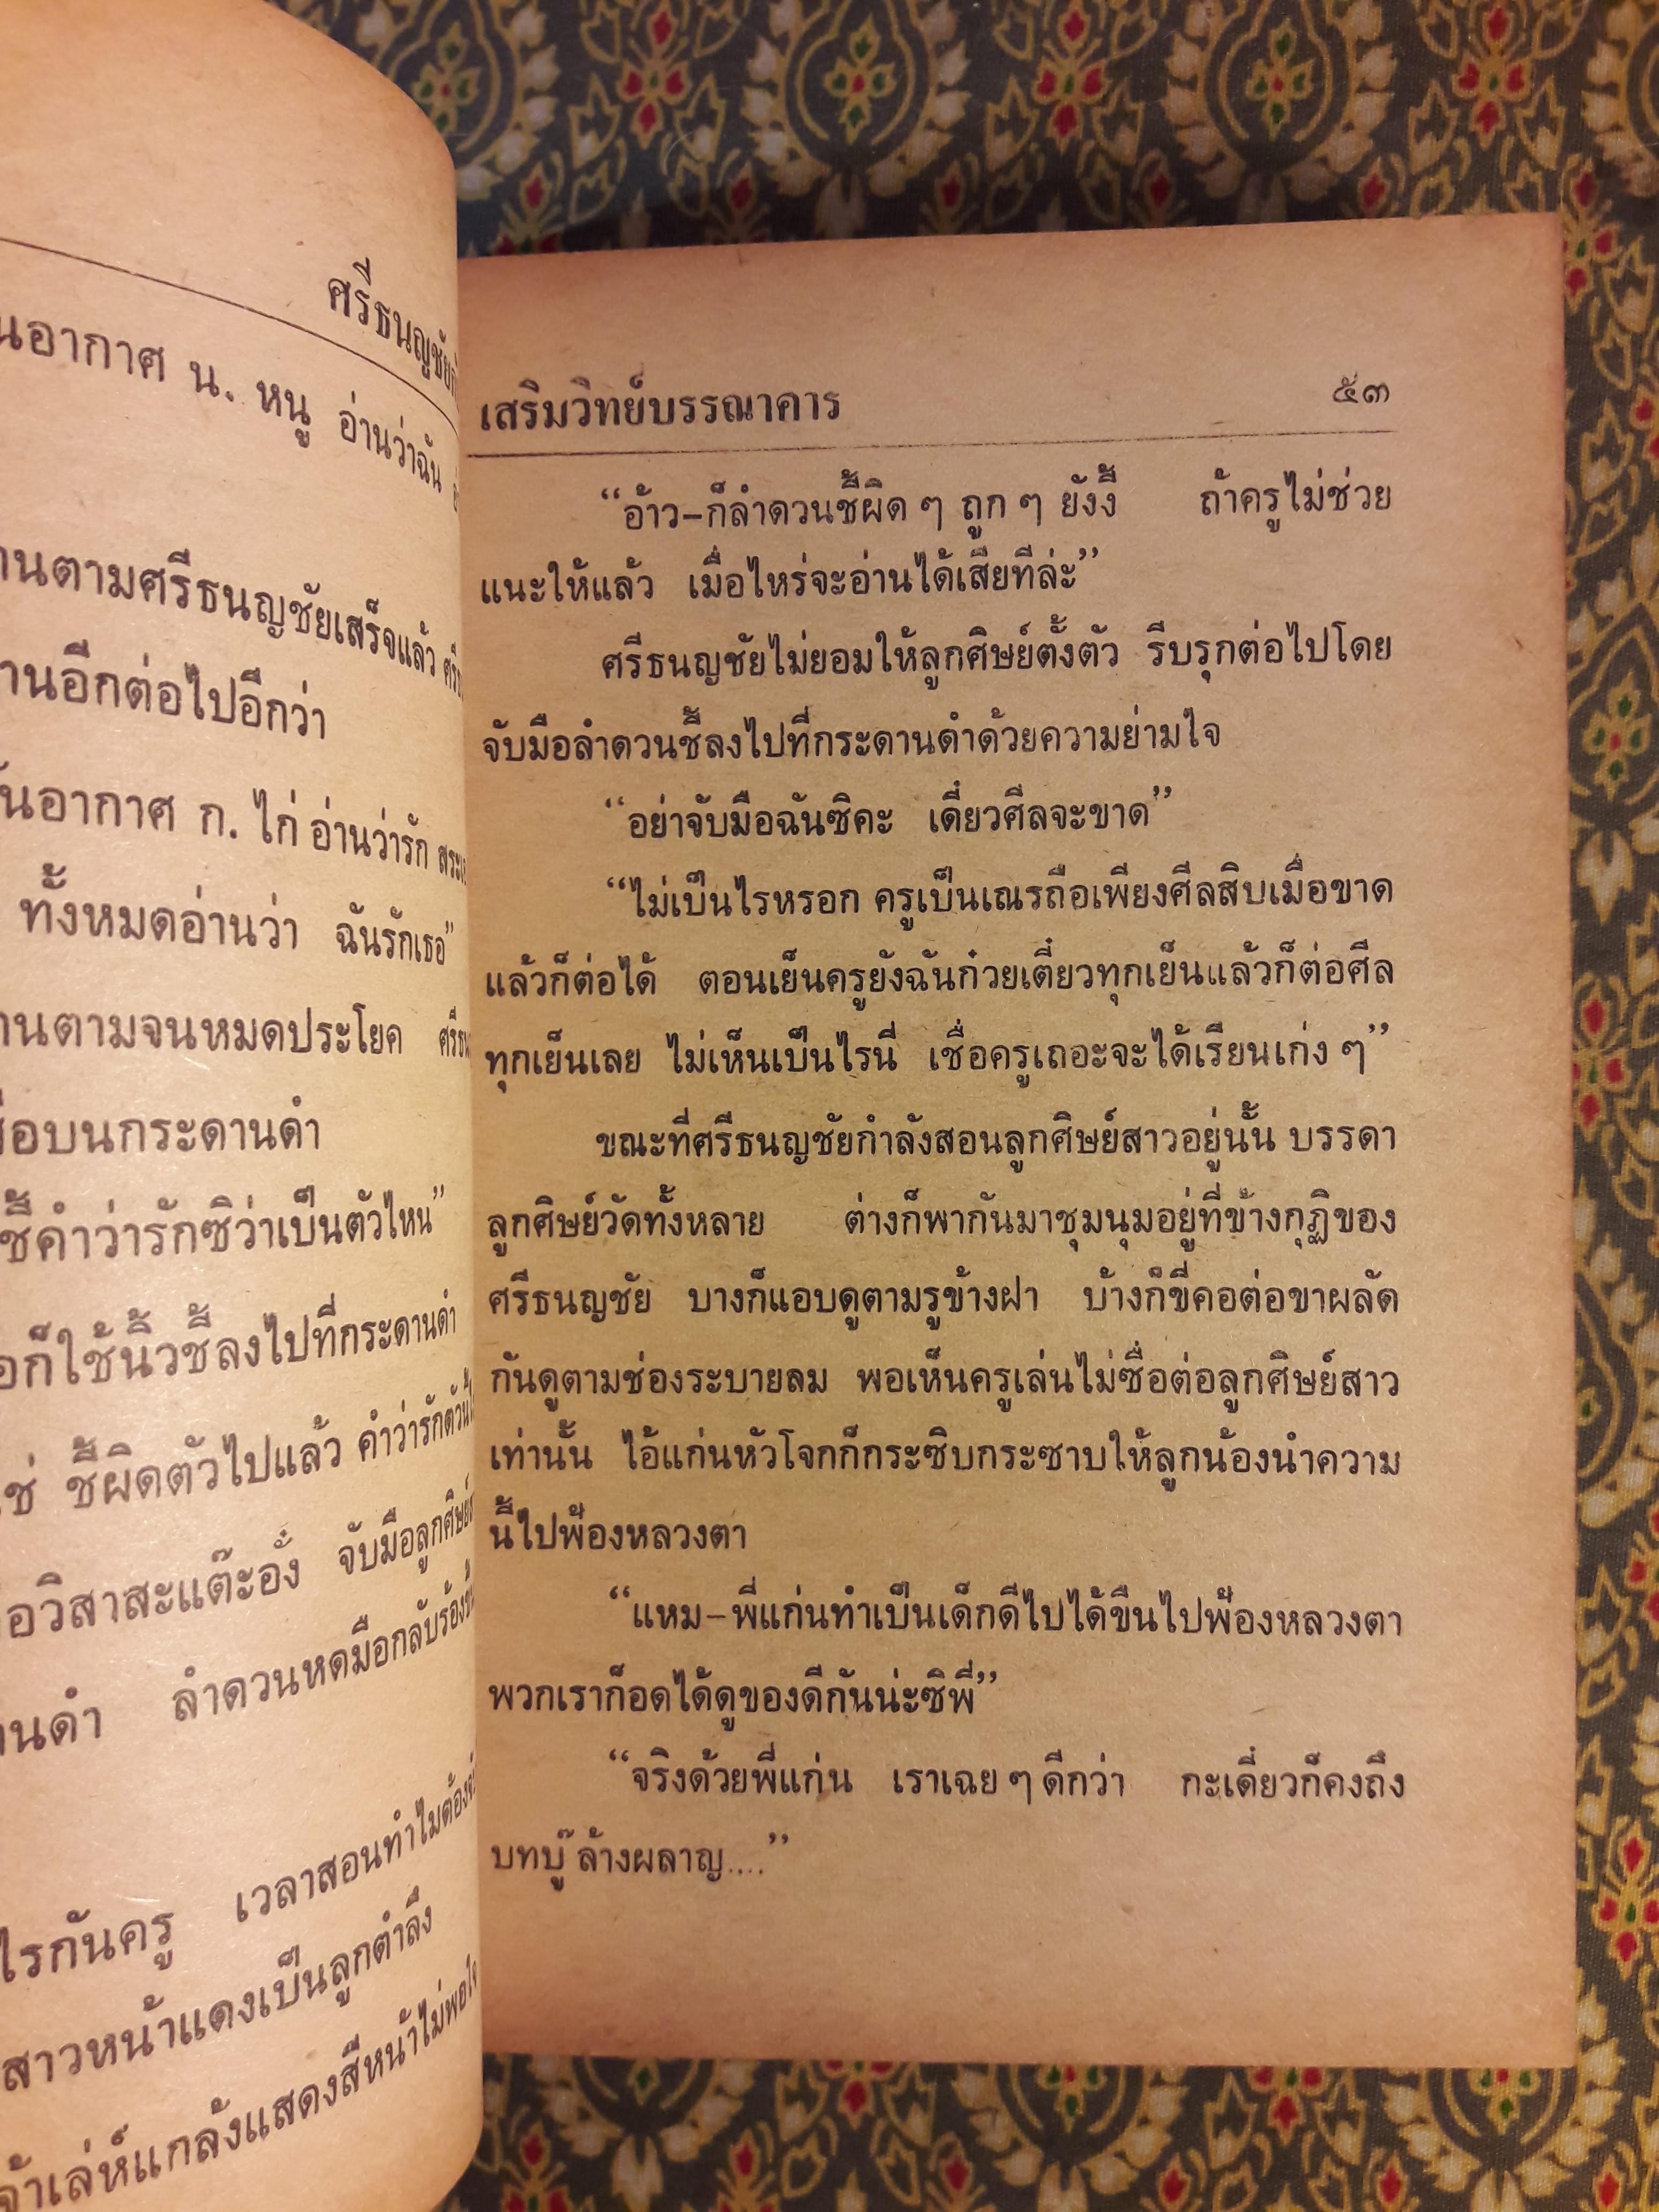 ศรีธนญชัย
นอากาศ น. หนู อ่านว่าฉัน
านตามศรีธนญชัยเสร็จแล้ว
านอีกต่อไปอีกว่า
นอากาศ ก. ไก่ อ่านว่ารัก
ทั้งหมดอ่านว่า ฉันรักเธอ”
านตามจนหมดประโยค
อบนกระดานดำ
ชี้คำว่ารักซิว่าเป็นตัวไหน”
อก็ใช้นิ้วชี้ลงไปที่กระดานดำ
ช่ ชี้ผิดตัวไปแล้ว
อวิสาสะแต๊ะอั๋ง จับมือลูกศิษย์
านดำ ลำดวนหดมือกลับร้อง
ไรกันครู เวลาสอนทำไมต้อง
สาวหน้าแดงเป็นลูกตำลึง
จ้าเล่ห์แกล้งแสดงสีหน้าไม่พอใจ
เสริมวิทย์บรรณาคาร ๕๓
“อ้าว–ก็ลำดวนชี้ผิด ๆ ถูก ๆ ยังงี้ ถ้าครูไม่ช่วย
แนะให้แล้ว เมื่อไหร่จะอ่านได้เสียทีล่ะ”
ศรีธนญชัยไม่ยอมให้ลูกศิษย์ตั้งตัว รีบรุกต่อไปโดย
จับมือลำดวนชี้ลงไปที่กระดานดำด้วยความย่ามใจ
“อย่าจับมือฉันซิคะ เดี๋ยวศีลจะขาด”
“ไม่เป็นไรหรอก ครูเป็นเณรถือเพียงศีลสิบเมื่อขาด
แล้วก็ต่อได้ ตอนเย็นครูยังฉันก๋วยเตี๋ยวทุกเย็นแล้วก็ต่อศีล
ทุกเย็นเลย ไม่เห็นเป็นไรนี่ เชื่อครูเถอะจะได้เรียนเก่ง ๆ”
ขณะที่ศรีธนญชัยกำลังสอนลูกศิษย์สาวอยู่นั้น บรรดา
ลูกศิษย์วัดทั้งหลาย ต่างก็พากันมาชุมนุมอยู่ที่ข้างกุฏิของ
ศรีธนญชัย บางก็แอบดูตามรูข้างฝา บ้างก็ขี่คอต่อขาผลัด
กันดูตามช่องระบายลม พอเห็นครูเล่นไม่ซื่อต่อลูกศิษย์สาว
เท่านั้น ไอ้แก่นหัวโจกก็กระซิบกระซาบให้ลูกน้องนำความ
นี้ไปฟ้องหลวงตา
“แหม–พี่แก่นทำเป็นเด็กดีไปได้ขืนไปฟ้องหลวงตา
พวกเราก็อดได้ดูของดีกันน่ะซิพี่”
“จริงด้วยพี่แก่น เราเฉย ๆ ดีกว่า กะเดี๋ยวก็คงถึง
บทบู๊ ล้างผลาญ....”